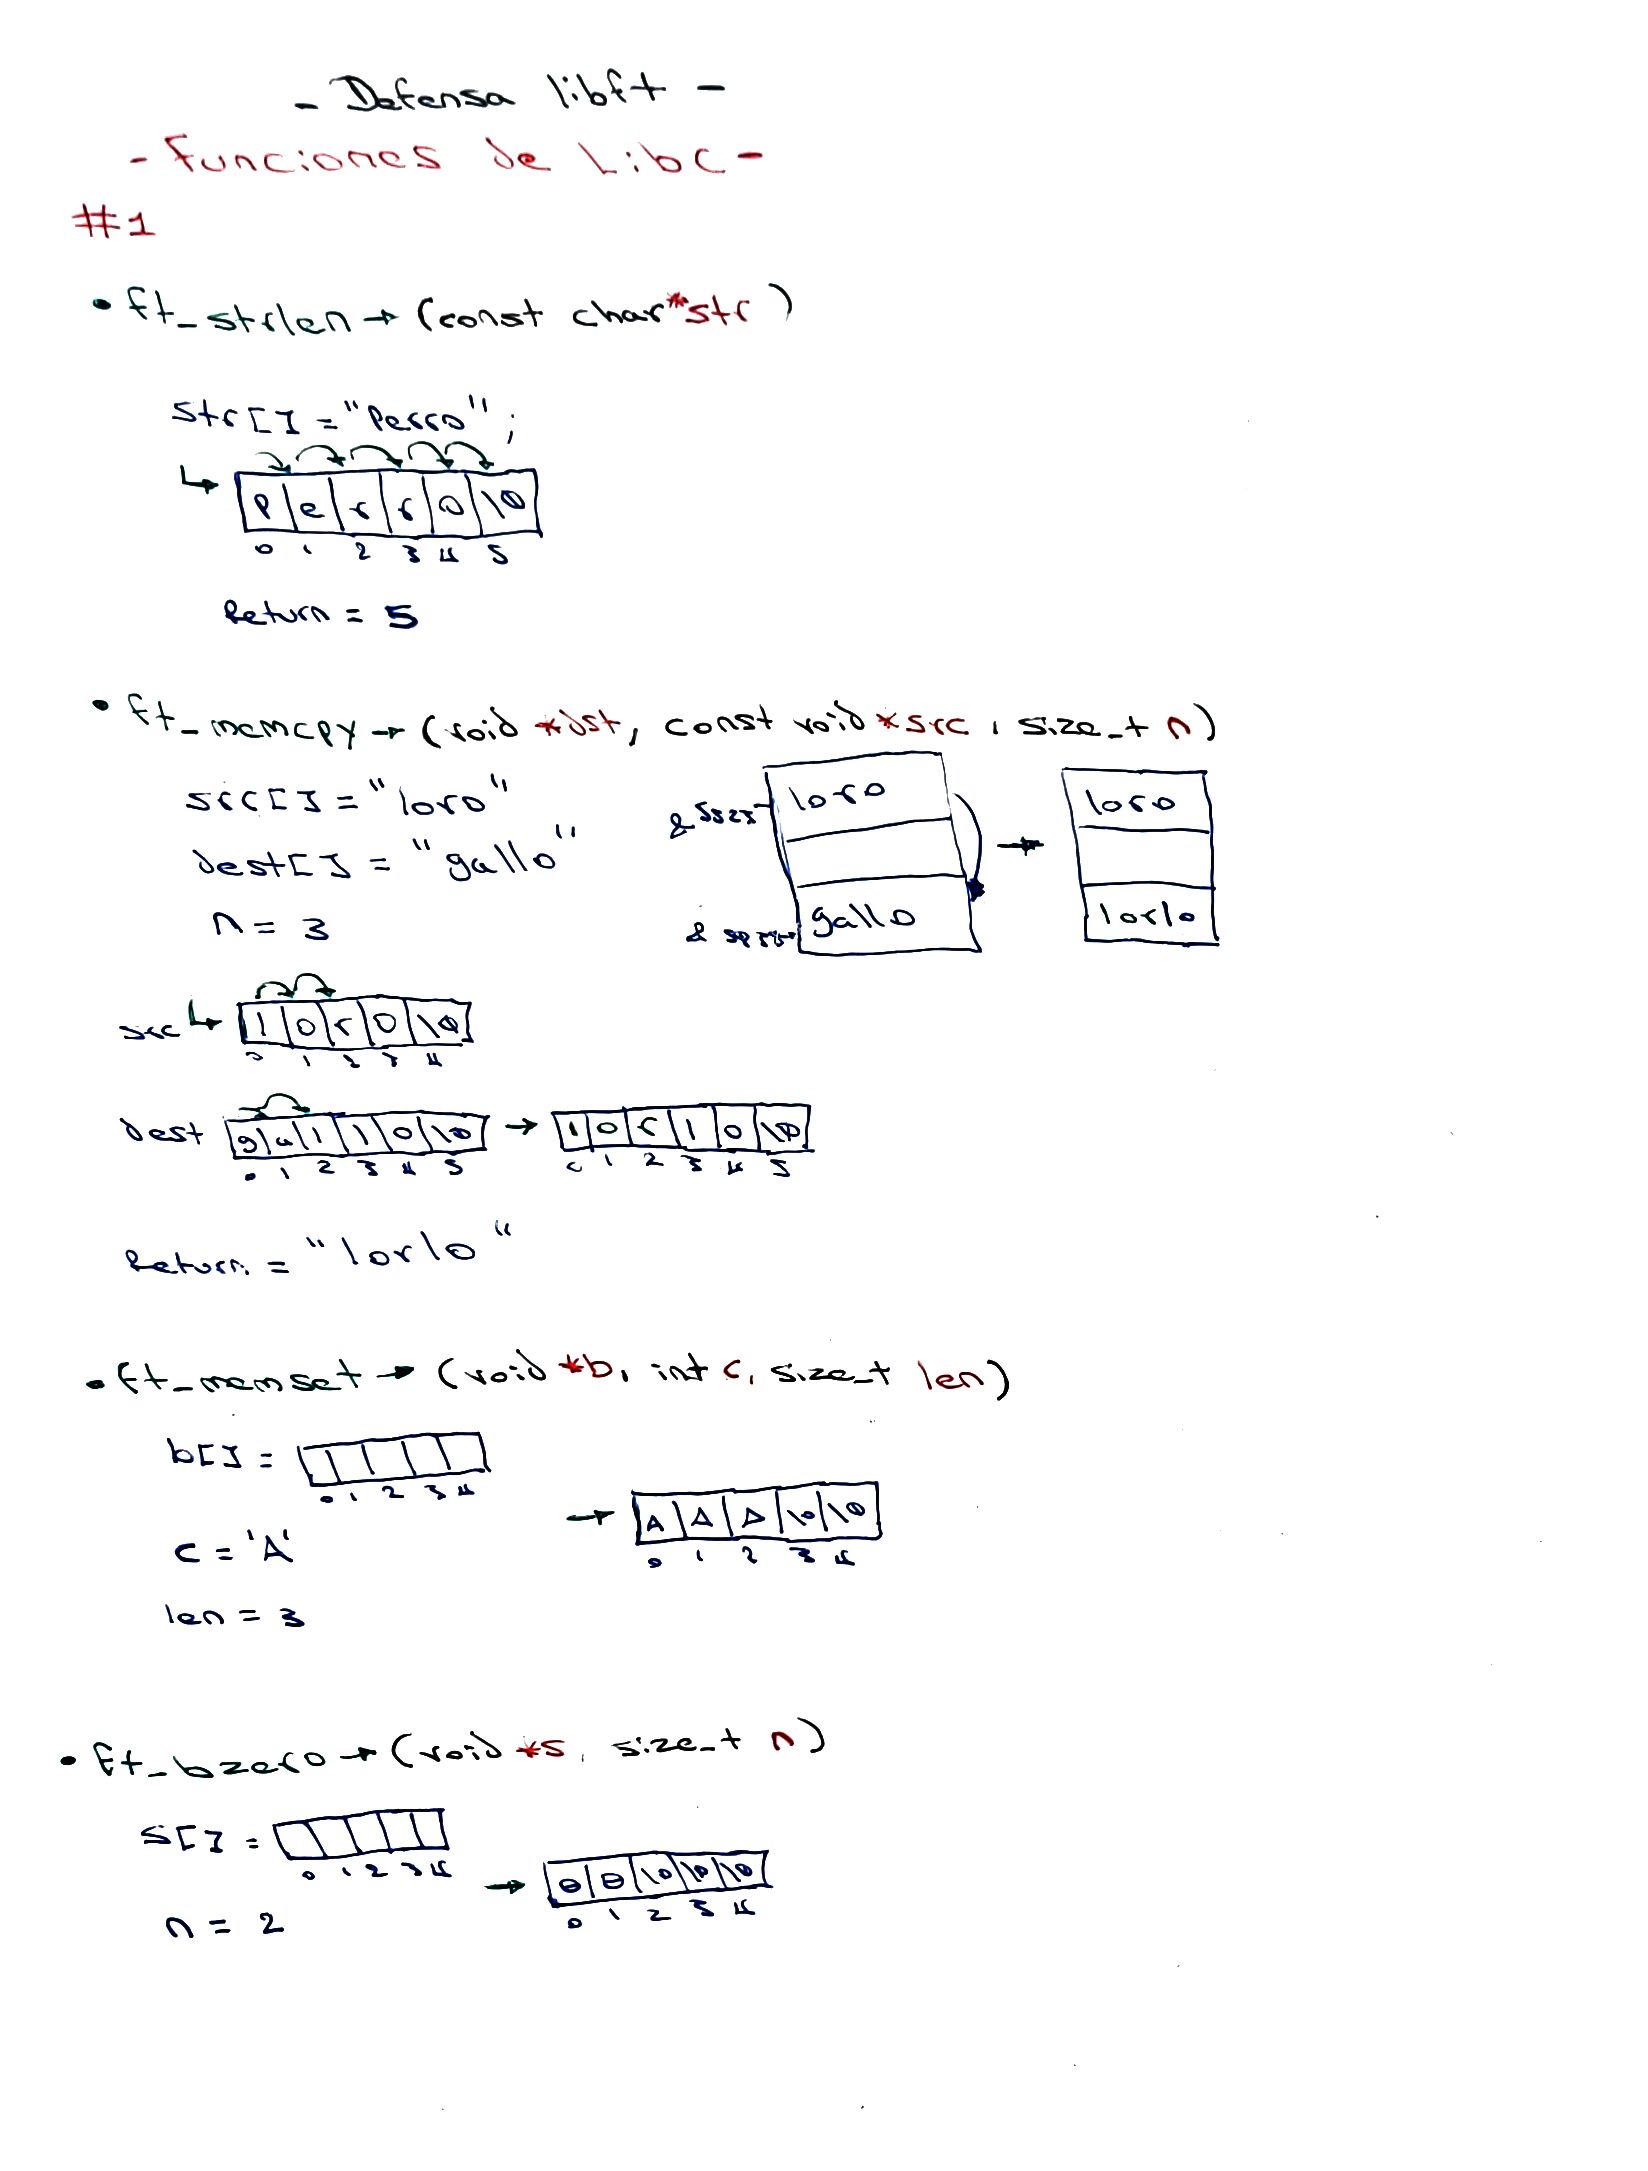 - Defensa libft -
- Funciones de Libc -
#1
• ft_strlen → (const char *str)
str[] = "Perro";
P e r r o \0
0 1 2 3 4 5
Return = 5
• ft_memcpy → (void *dst, const void *src, size_t n)
src[] = "loro"
dest[] = "gallo"
n = 3
loro
gallo
→
loro
lorlo
src l o r o \0
0 1 2 3 4
dest g a l l o \0 → l o r l o \0
0 1 2 3 4 5 0 1 2 3 4 5
Return = "lorlo"
• ft_memset → (void *b, int c, size_t len)
b[] =
0 1 2 3 4
→ A A A \0 \0
0 1 2 3 4
c = 'A'
len = 3
• ft_bzero → (void *s, size_t n)
s[] =
0 1 2 3 4
→ 0 0 \0 \0 \0
0 1 2 3 4
n = 2